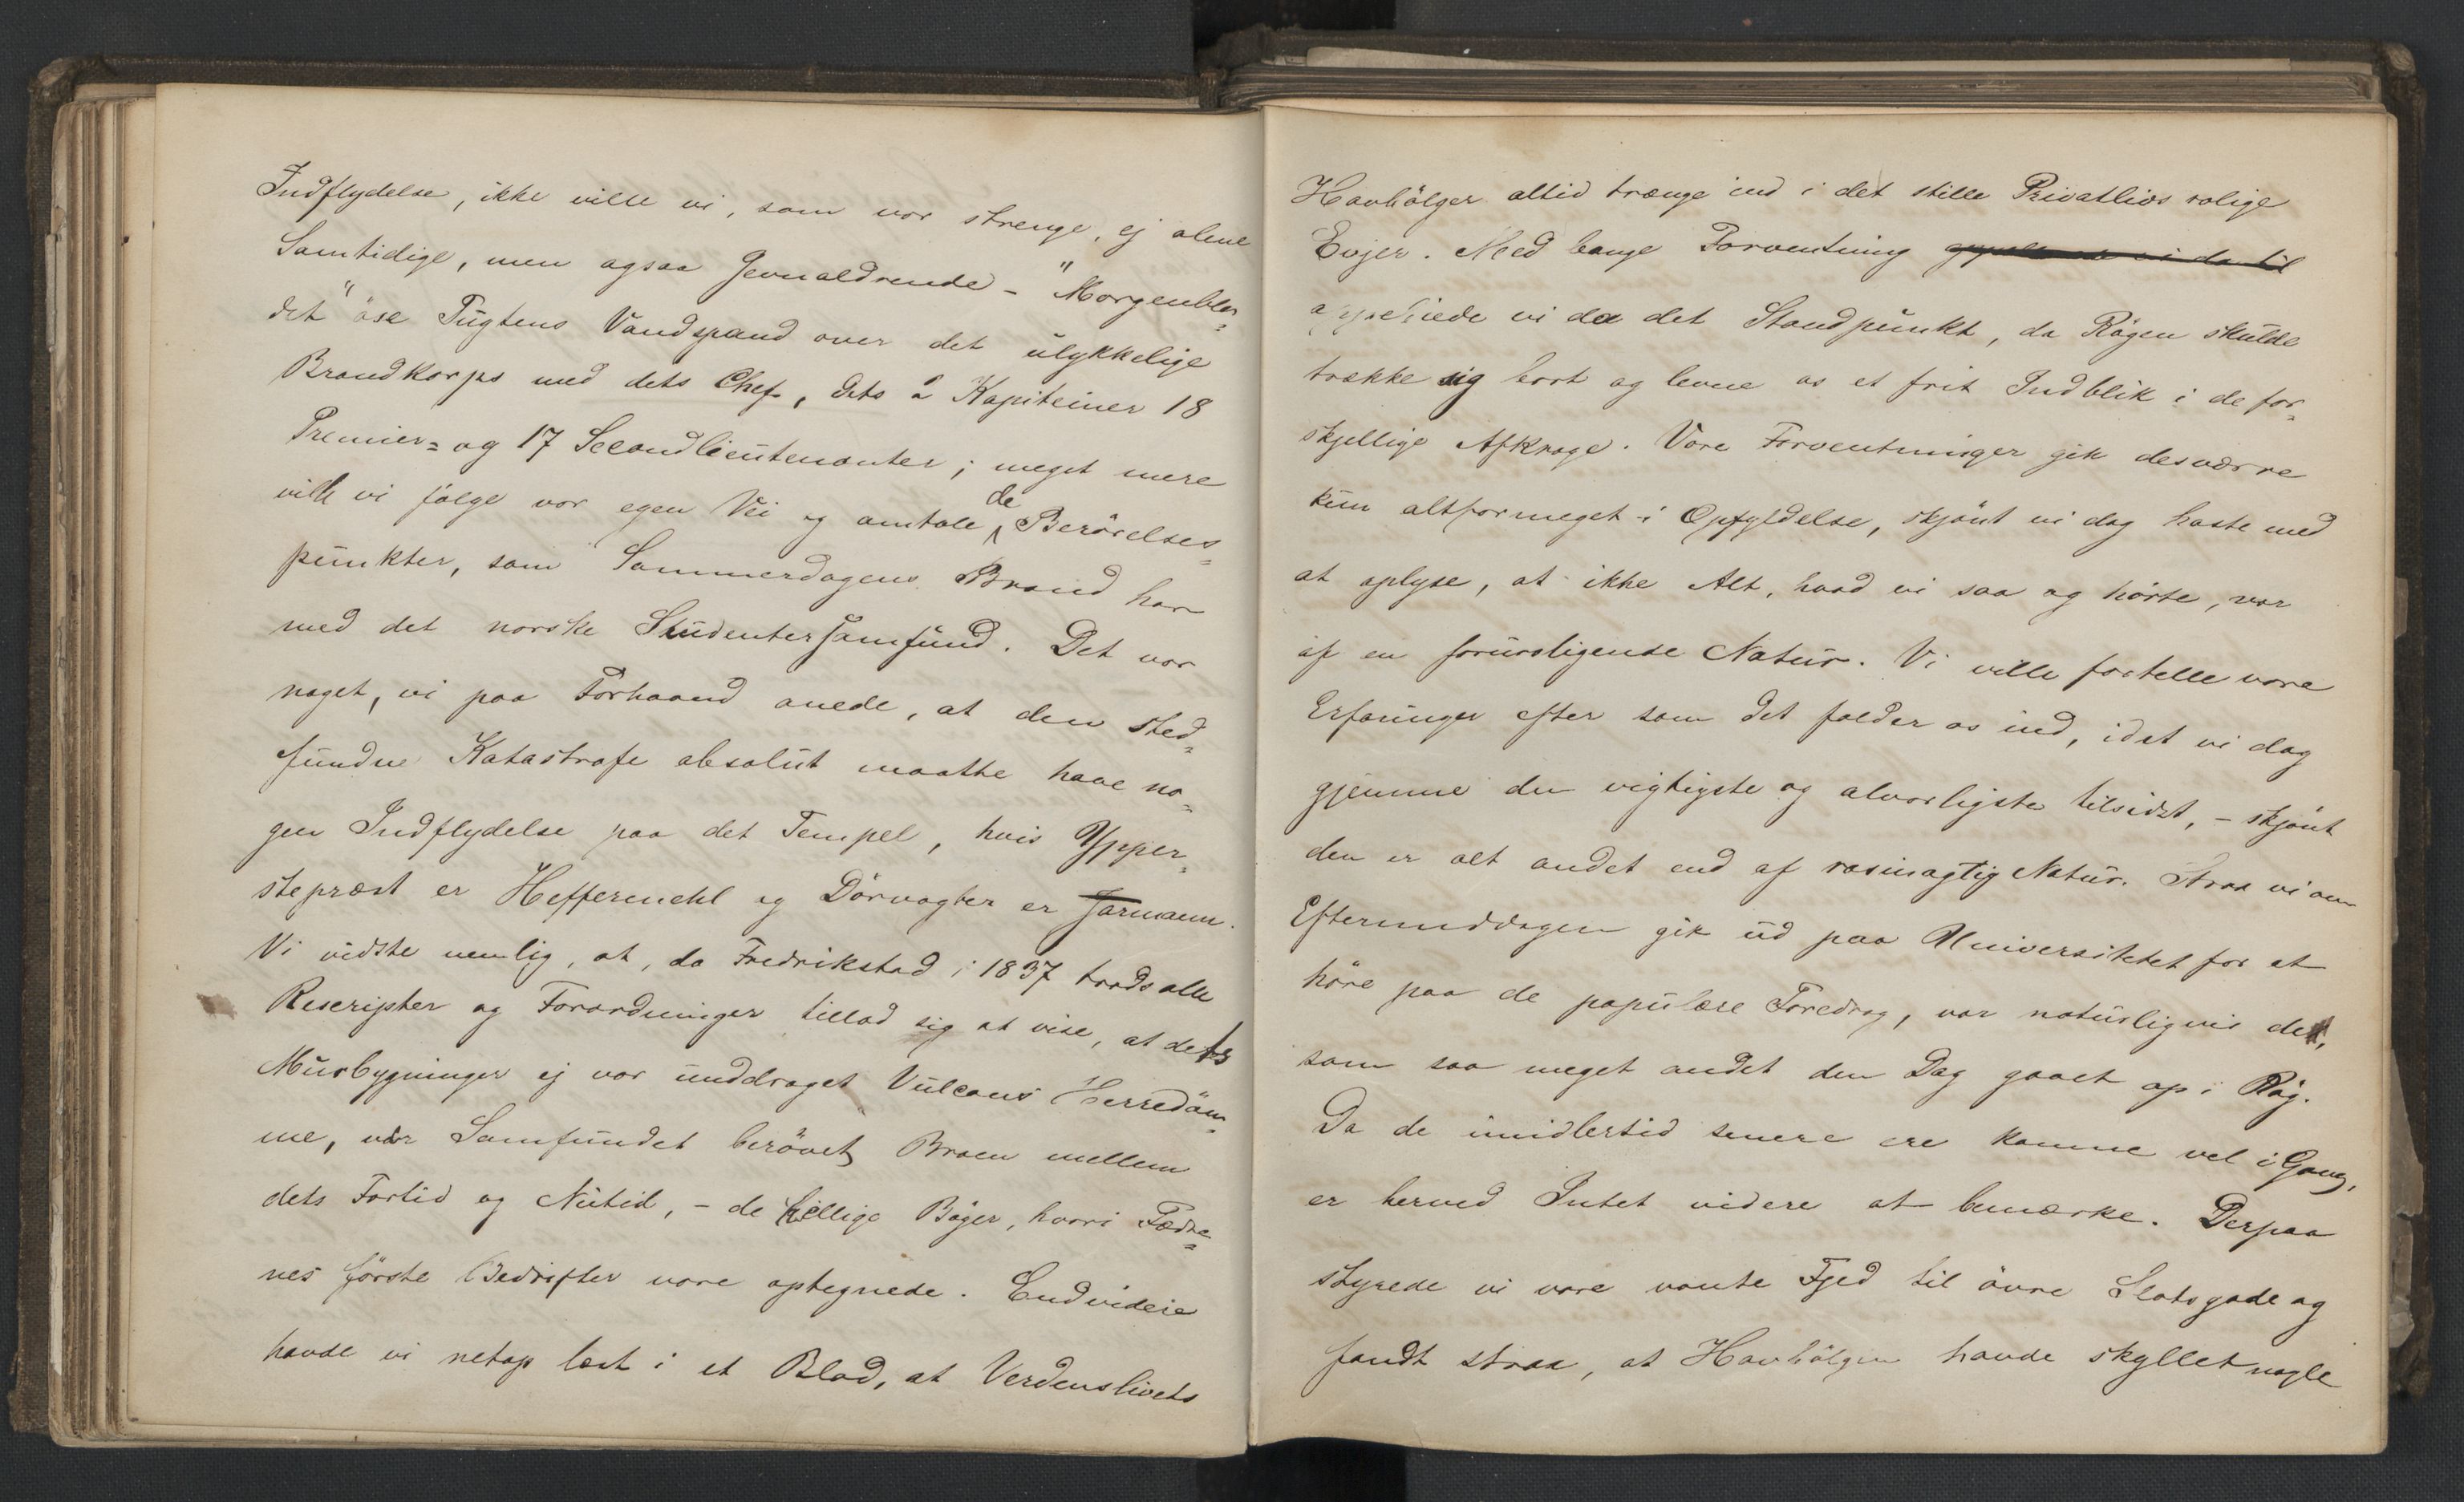 Indflydelse, ikke ville vi, som vor strenge, ej alene
Samtidige, men ogsaa Jevnaldrende - "Morgenbla=
det" øse Tugtens Vandspand over det ulykkelige
Brandkorps med dets Chef, dets 2 Kapiteiner 18
Premier= og 17 Secondlieutenanter; meget mere
ville vi følge vor egen Vei og omtale de Berørelses=
punkter, som Sommerdagens Brand har
med det norske Studentersamfund. Det var
noget, vi paa Forhaand anede, at den sted=
fundne Katastrofe absolut maatte have no=
gen Indflydelse paa det Tempel, hvis Ypper=
stepræst er Heffermehl og Dørvogter er Jarmann.
Vi vidste nemlig, at, da Fredrikstad i 1837 trods alle
Rescripter og Forordninger tillod sig at vise, at dets
Murbygninger ej var unddraget Vulcans Herredøm=
me, var Samfundet berøvet Broen mellem
dets Fortid og Nutid, - de hellige Bøger, hvori Fædre=
nes første Bedrifter vare optegnede. Endvidere
havde vi netop læst i et Blad, at Verdenslivets
Havbølger altid trænge ind i det stille Privatlivs rolige
Evjer. Med bange Forventning vi da til
oppebiede vi da det Standpunkt, da Røgen skulde
trække sig bort og levne os et frit Indblik i de for=
skjellige Afkroge. Vore Forventninger gik desværre
kun altformeget i Opfyldelse, skjønt vi dog haste med
at oplyse, at ikke Alt, hvad vi saa og hørte, var
af en foruroligende Natur. Vi ville fortelle vore
Erfaringer efter som det falder os ind, idet vi dog
gjemme den vigtigste og alvorligste tilsidst, - skjønt
den er alt andet end af rosinagtig Natur. Strax vi om
Eftermiddagen gik ud paa Universitetet for at
høre paa de populære Foredrag, var naturligvis det,
som saa meget andet den Dag gaaet op i Røg.
Da de imidlertid senere ere komne vel i Gang,
er herved Intet videre at bemærke. Derpaa
styrede vi vore vante Fjed til øvre Slotsgade og
fandt strax, at Havbølgen havde skyllet nogle